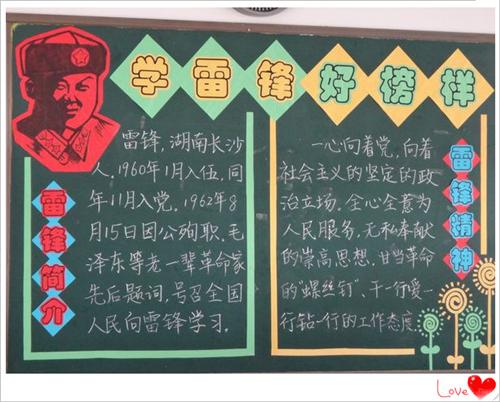 学雷锋好榜样
雷锋简介
雷锋，湖南长沙
人，1960年1月入伍，同
年11月入党，1962年8
月15日因公殉职，毛
泽东等老一辈革命家
先后题词，号召全国
人民向雷锋学习．
一心向着党，向着
社会主义的坚定的政
治立场，全心全意为
人民服务，无私奉献
的崇高思想，甘当革命
的“螺丝钉”、干一行爱一
行钻一行的工作态度
雷锋精神
Love